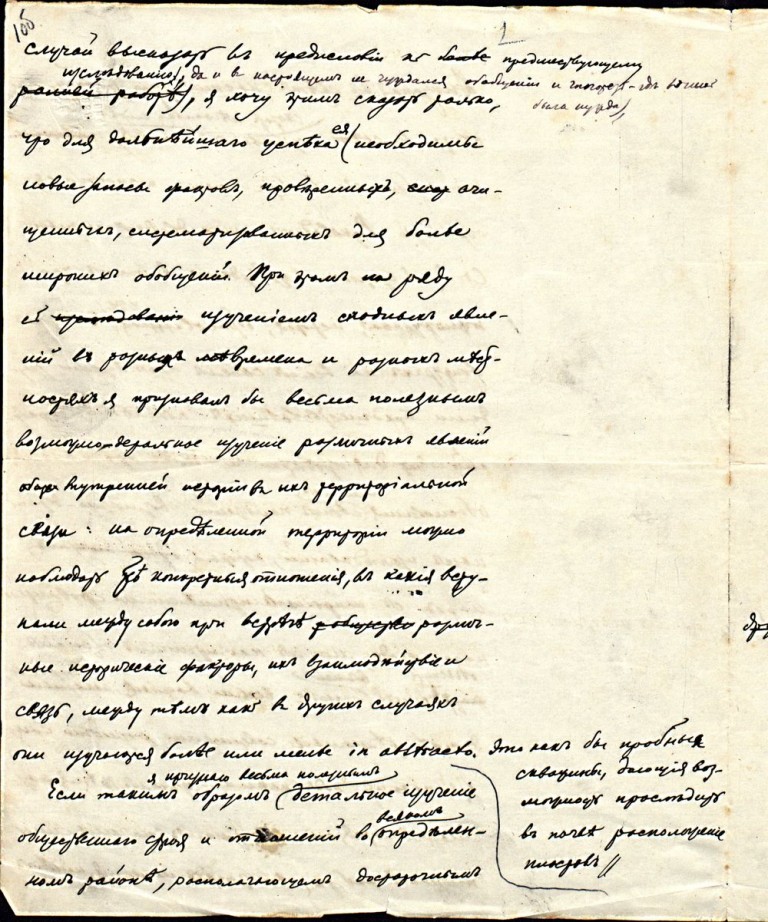 1
случай высказать въ предисловіи къ более предшествующему
изслѣдованію, да и в настоящемъ не чуждался обобщеній и гипотез
была нужда),
ранней работѣ), я хочу этимъ сказать только,
что для дальнѣйшаго успѣха ея необходимы
новые запасы фактовъ, провѣренныхъ, очи-
щенныхъ, систематизированныхъ для болѣе
широкихъ обобщеній. При этомъ на ряду
съ изученіемъ сходныхъ явле-
ній въ разныя времена и разныхъ мѣст-
ностяхъ я признавалъ бы весьма полезнымъ
возможно детальное изученіе различныхъ явленій
внутренней исторіи въ ихъ территоріальной
связи: на определѣнной территоріи можно
наблюдать тѣ конкретныя отношенія, въ какія всту-
пали между собою при встрѣчѣ различ-
ные историческіе факторы, ихъ взаимодѣйствіе и
связь, между тѣмъ какъ въ другихъ случаяхъ
они изучаются болѣе или менѣе in abstracto. Это какъ бы пробныя
скважины, дающія воз-
можность прослѣдить
въ почвѣ расположеніе
пластовъ //
я признаю весьма полезнымъ
Если такимъ образомъ детальное изученіе
всякомъ
общественнаго строя и отношеній во опредѣлен-
номъ районѣ, располагающемъ достаточнымъ